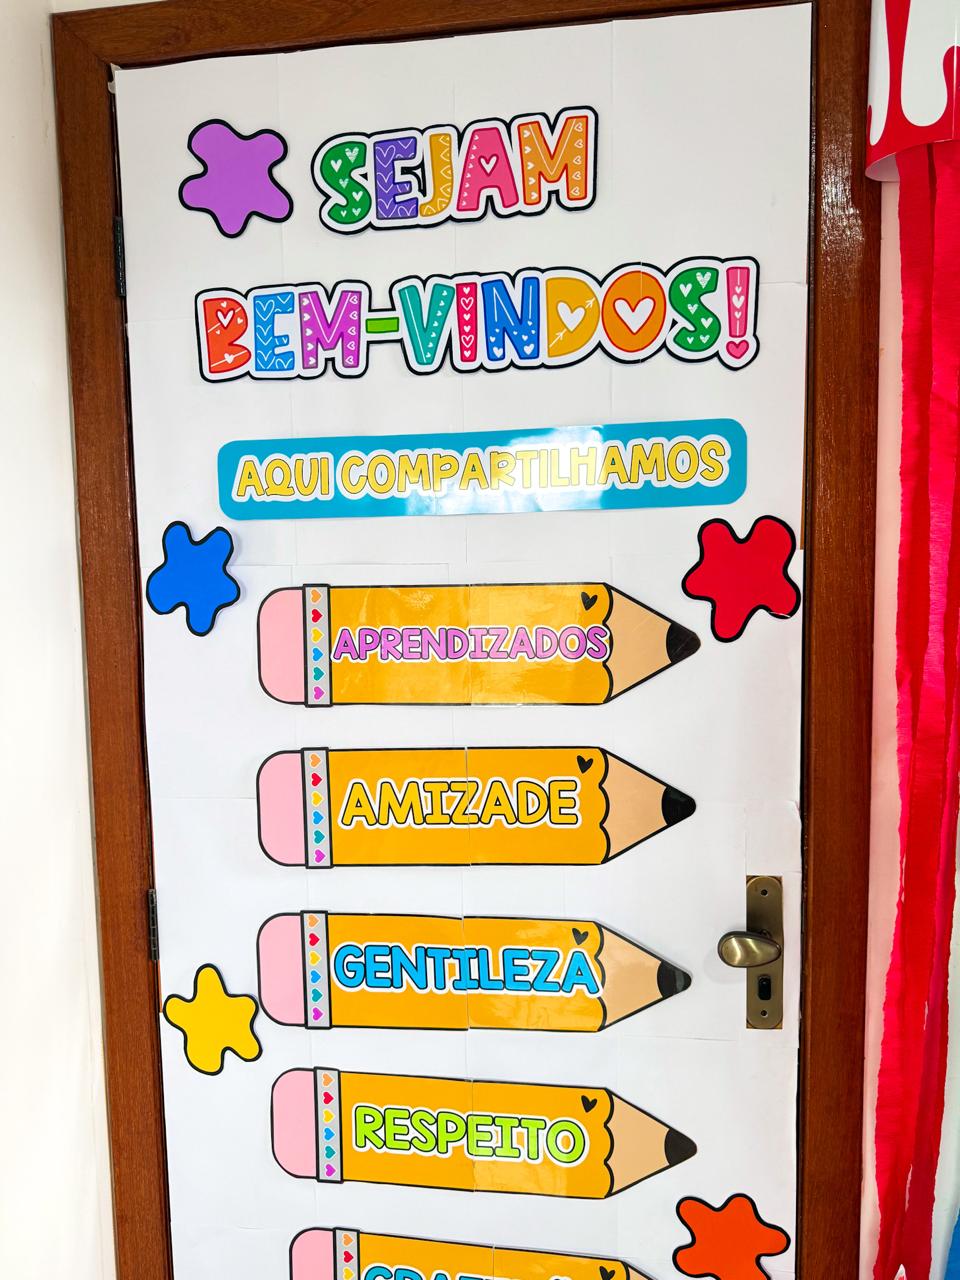 SEJAM
BEM-VINDOS!
AQUI COMPARTILHAMOS
APRENDIZADOS
AMIZADE
GENTILEZA
RESPEITO